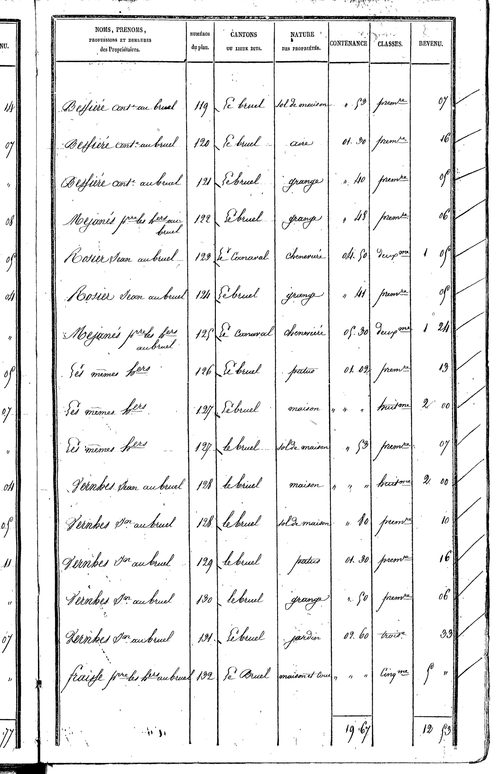 NU.
NOMS, PRENOMS,
PROFESSIONS ET DEMEURES
des Propriétaires.
NUMÉROS
du plan.
CANTONS
OU LIEUX DITS.
NATURE
DES PROPRIÉTÉS.
CONTENANCE
CLASSES.
REVENU.
14 Bessière ant.ne au bruel 119 Le bruel sol de maison " 53 prem.re 07
07 Bessière ant.ne au bruel 120 Le bruel aire 01.30 prem.re 16
" Bessière ant.ne au bruel 121 Le bruel grange " 40 prem.re 05
08 Mejanés p.rre les h.ers au
bruel 122 Le bruel grange " 48 prem.re 06
05 Rosier Jean au bruel 123 Le Canaval cheneviere 04.50 deux.me 1 05
04 Rosier Jean au bruel 124 Le bruel grange " 41 prem.re 05
" Mejanés p.rre les h.ers
au bruel 125 Le Canaval cheneviere 05.30 deux.me 1 24
05 Les mêmes h.ers 126 Le bruel patus 01.02 prem.re 13
07 Les mêmes h.ers 127 Le bruel maison " " " huit.me 2 00
" Les mêmes h.ers 127 le bruel sol de maison " 53 prem.re 07
04 Vernhes Jean au bruel 128 le bruel maison " " " huit.me 2 00
05 Vernhes J.an au bruel 128 le bruel sol de maison " 80 prem.re 10
11 Vernhes J.an au bruel 129 le bruel patus 01.30 prem.re 16
" Vernhes J.an au bruel 130 le bruel grange " 50 prem.re 06
07 Vernhes J.an au bruel 131 Le bruel jardin 02.60 trois.e 33
" fraisse p.rre les h.ers au bruel 132 Le Bruel maison et cour " " " cinq.me 5 "
77 19 67 12 53